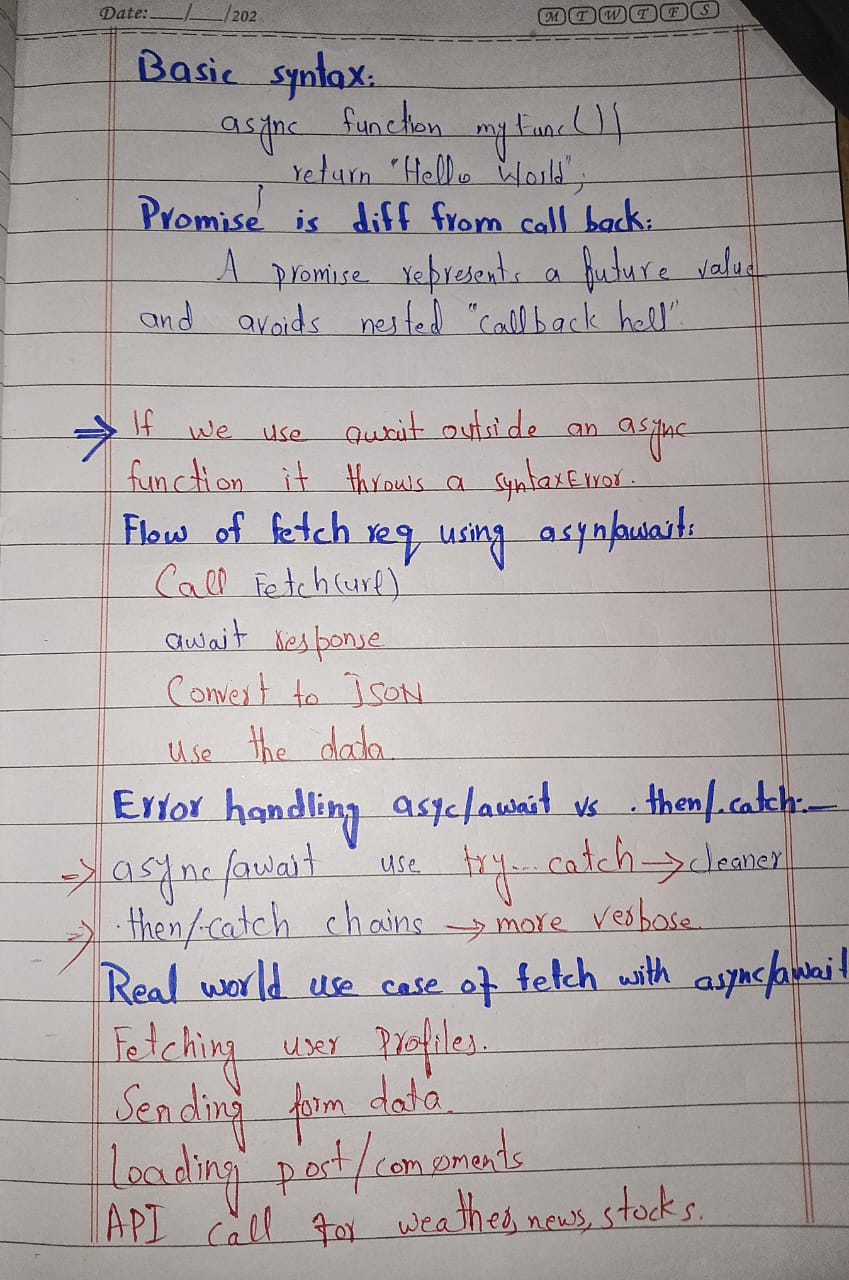 Date: __/__/202 M T W T F S
Basic syntax:
async function myFunc(){
return "Hello World";
}
Promise is diff from call back:
A promise represents a future value
and avoids nested "callback hell".
⇒ If we use await outside an async
function it throws a syntaxError.
Flow of fetch req using asyn/await:
Call Fetch(url)
await response
Convert to JSON
use the data.
Error handling asyc/await vs .then/.catch:-
⇒ async/await use try... catch → cleaner
⇒ .then/.catch chains → more verbose.
Real world use case of fetch with async/await
Fetching user Profiles.
Sending form data.
Loading post/comoments
API call for weather, news, stocks.